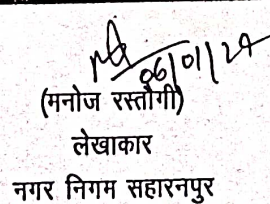 06/01/21
(मनोज रस्तौगी)
लेखाकार
नगर निगम सहारनपुर